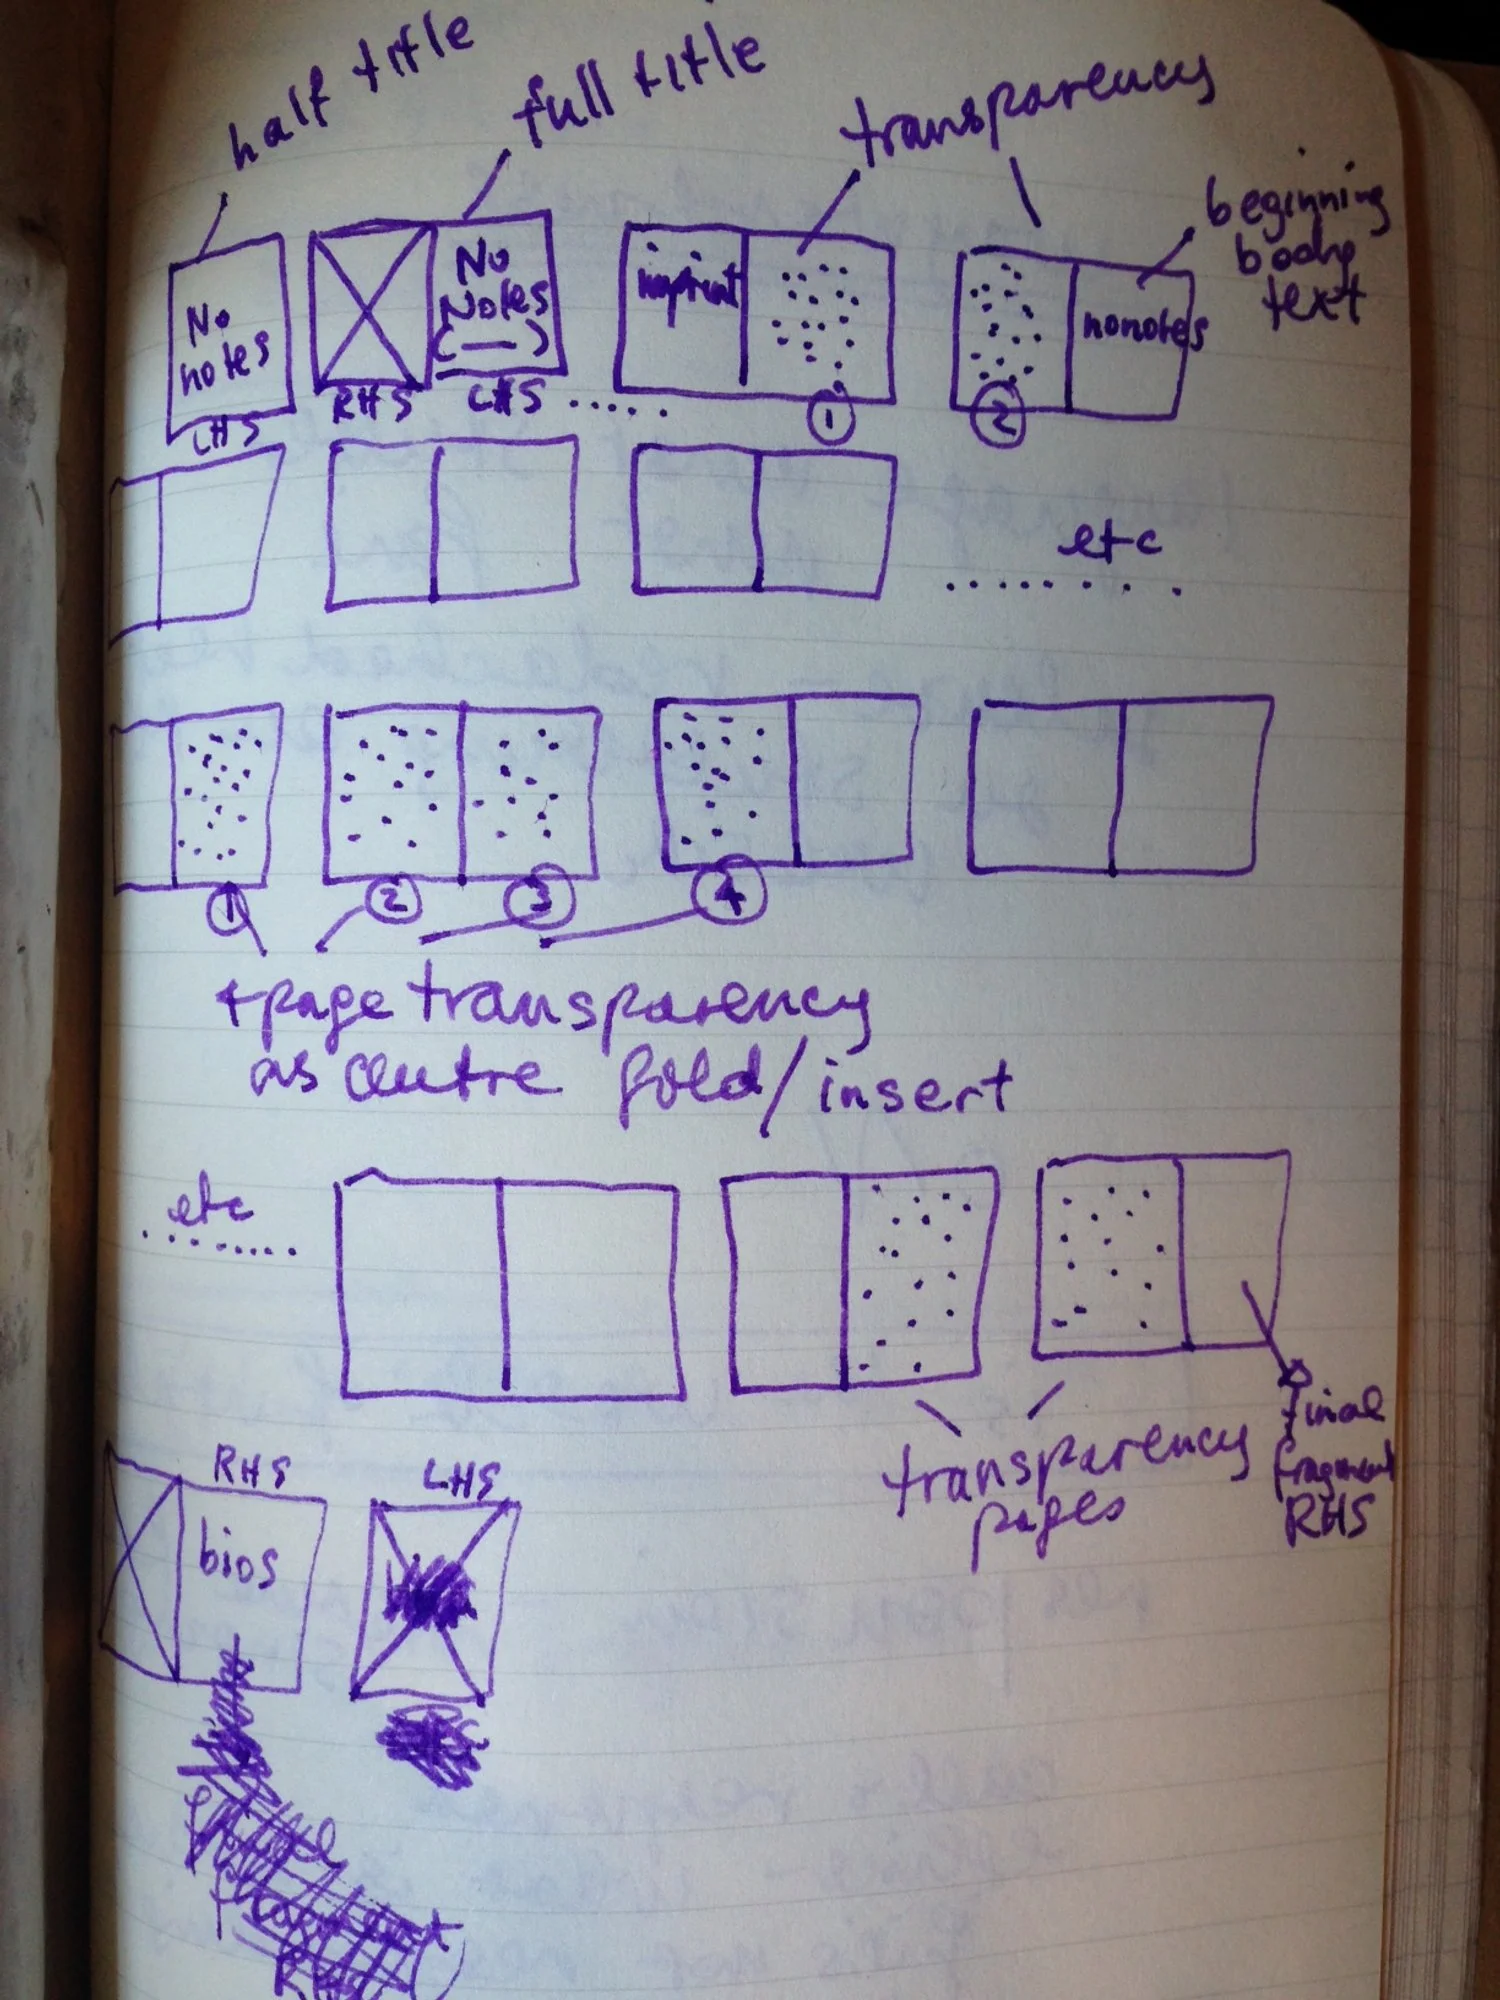 half title
full title
transparency
beginning
body
text
No
notes
No
Notes
(—)
imprint
nonotes
LHS
RHS
LHS
1
2
etc
1
2
3
4
4page transparency
as centre fold/insert
etc
transparency
pages
final
fragment
RHS
RHS
LHS
bios